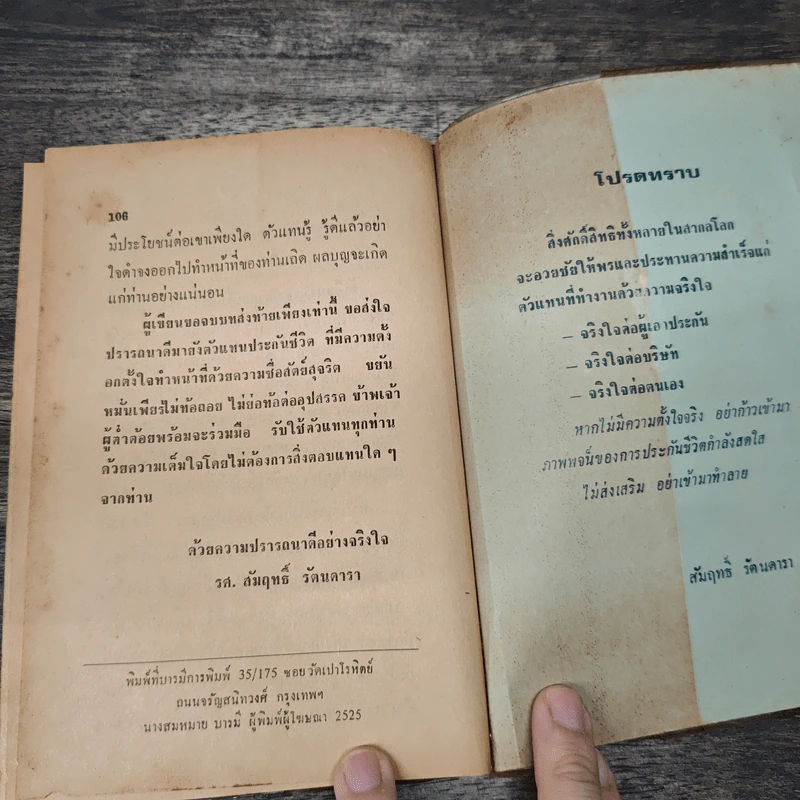 106
มีประโยชน์ต่อเขาเพียงใด ตัวแทนรู้ รู้ดีแล้วอย่า
ใจดำจงออกไปทำหน้าที่ของท่านเถิด ผลบุญจะเกิด
แก่ท่านอย่างแน่นอน
ผู้เขียนขอจบบทส่งท้ายเพียงเท่านี้ ขอส่งใจ
ปรารถนาดีมายังตัวแทนประกันชีวิต ที่มีความตั้ง
อกตั้งใจทำหน้าที่ด้วยความซื่อสัตย์สุจริต ขยัน
หมั่นเพียรไม่ท้อถอย ไม่ย่อท้อต่ออุปสรรค ข้าพเจ้า
ผู้ต่ำต้อยพร้อมจะร่วมมือ รับใช้ตัวแทนทุกท่าน
ด้วยความเต็มใจโดยไม่ต้องการสิ่งตอบแทนใด ๆ
จากท่าน
ด้วยความปรารถนาดีอย่างจริงใจ
รศ. สัมฤทธิ์ รัตนดารา
พิมพ์ที่บารมีการพิมพ์ 35/175 ซอยวัดเปาโรหิตย์
ถนนจรัญสนิทวงศ์ กรุงเทพฯ
นางสมหมาย บารมี ผู้พิมพ์ผู้โฆษณา 2525
โปรดทราบ
สิ่งศักดิ์สิทธิทั้งหลายในสากลโลก
จะอวยชัยให้พรและประทานความสำเร็จแก่
ตัวแทนที่ทำงานด้วยความจริงใจ
– จริงใจต่อผู้เอาประกัน
– จริงใจต่อบริษัท
– จริงใจต่อตนเอง
หากไม่มีความตั้งใจจริง อย่าก้าวเข้ามา
ภาพพจน์ของการประกันชีวิตกำลังสดใส
ไม่ส่งเสริม อย่าเข้ามาทำลาย
สัมฤทธิ์ รัตนดารา